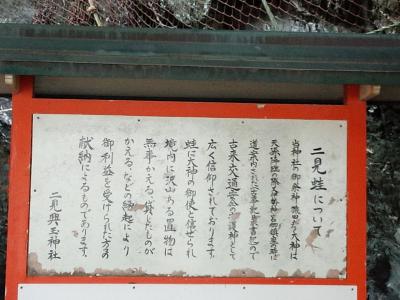 二見蛙について
当神社の御祭神猿田彦大神は
天孫降臨の際
道案内された
古来交通安全の守護神として
広く信仰されております。
蛙は大神の御使と信ぜられ
境内に沢山ある置物は
無事かえる、貸したものが
かえる、などの縁起により
御利益を受けられた方の
献納によるものであります。
二見興玉神社